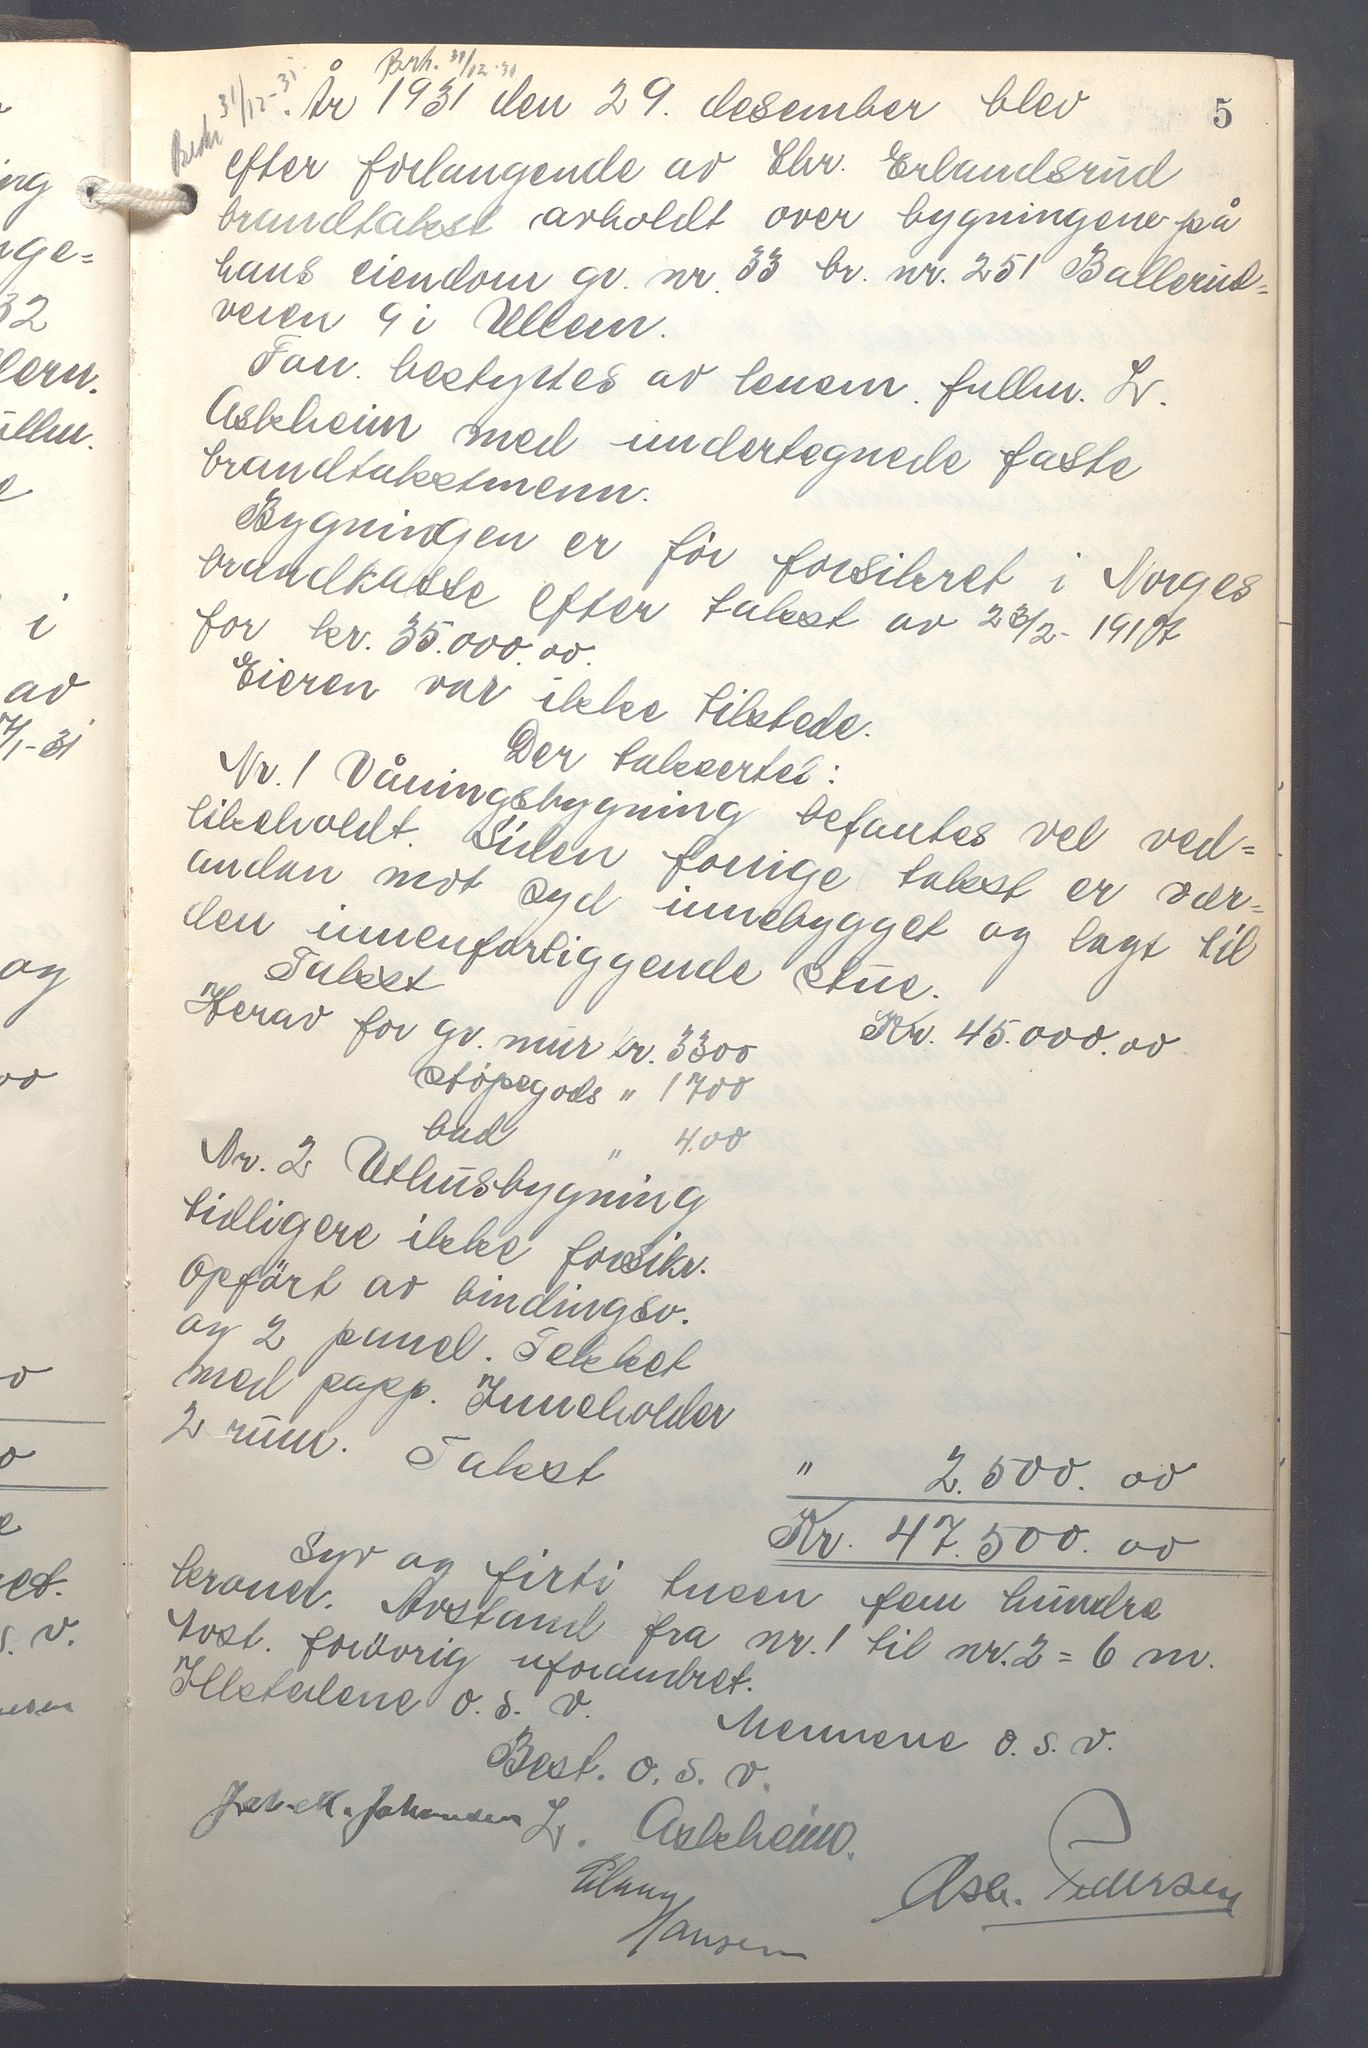 Brh. 31/12-31
Besk. 31/12-31.
5
År 1931 den 29. desember blev
efter forlangende av Chr. Erlandsrud
brandtakst avholdt over bygningene på
hans eiendom gr. nr. 33 br. nr. 251 Ballerud=
veien 9 i Ullern.
Forr. bestyrtes av lensm. fullm. L.
Askheim med undertegnede faste
brandtakstmenn.
Bygningen er för forsikret i Norges
brandkasse efter takst av 23/2- 1917
for kr. 35.000.00.
Eieren var ikke tilstede.
Der taksertes:
Nr. 1 Våningsbygning befantes vel ved=
likeholdt. Siden forrige takst er ver=
andan mot syd innebygget og lagt til
den innenforliggende stue.
Takst Kr. 45.000.00
Herav for gr. mur kr. 3300
stöpegods " 1700
bad " 400
Nr. 2 Uthusbygning
tidligere ikke forsikr.
Opfört av bindingsv.
og 2 panel. Tekket
med papp. Inneholder
2 rum. Takst " 2.500.00
Kr. 47.500.00
Syv og firti tusen fem hundre
kroner. Avstand fra nr. 1 til nr. 2 = 6 m.
Avst. forövrig uforandret.
Ildstedene o. s. v.
Mennene o. s. v.
Best. o. s. v.
Johansen L. Askheim.
Hansen
Ask. Pedersen